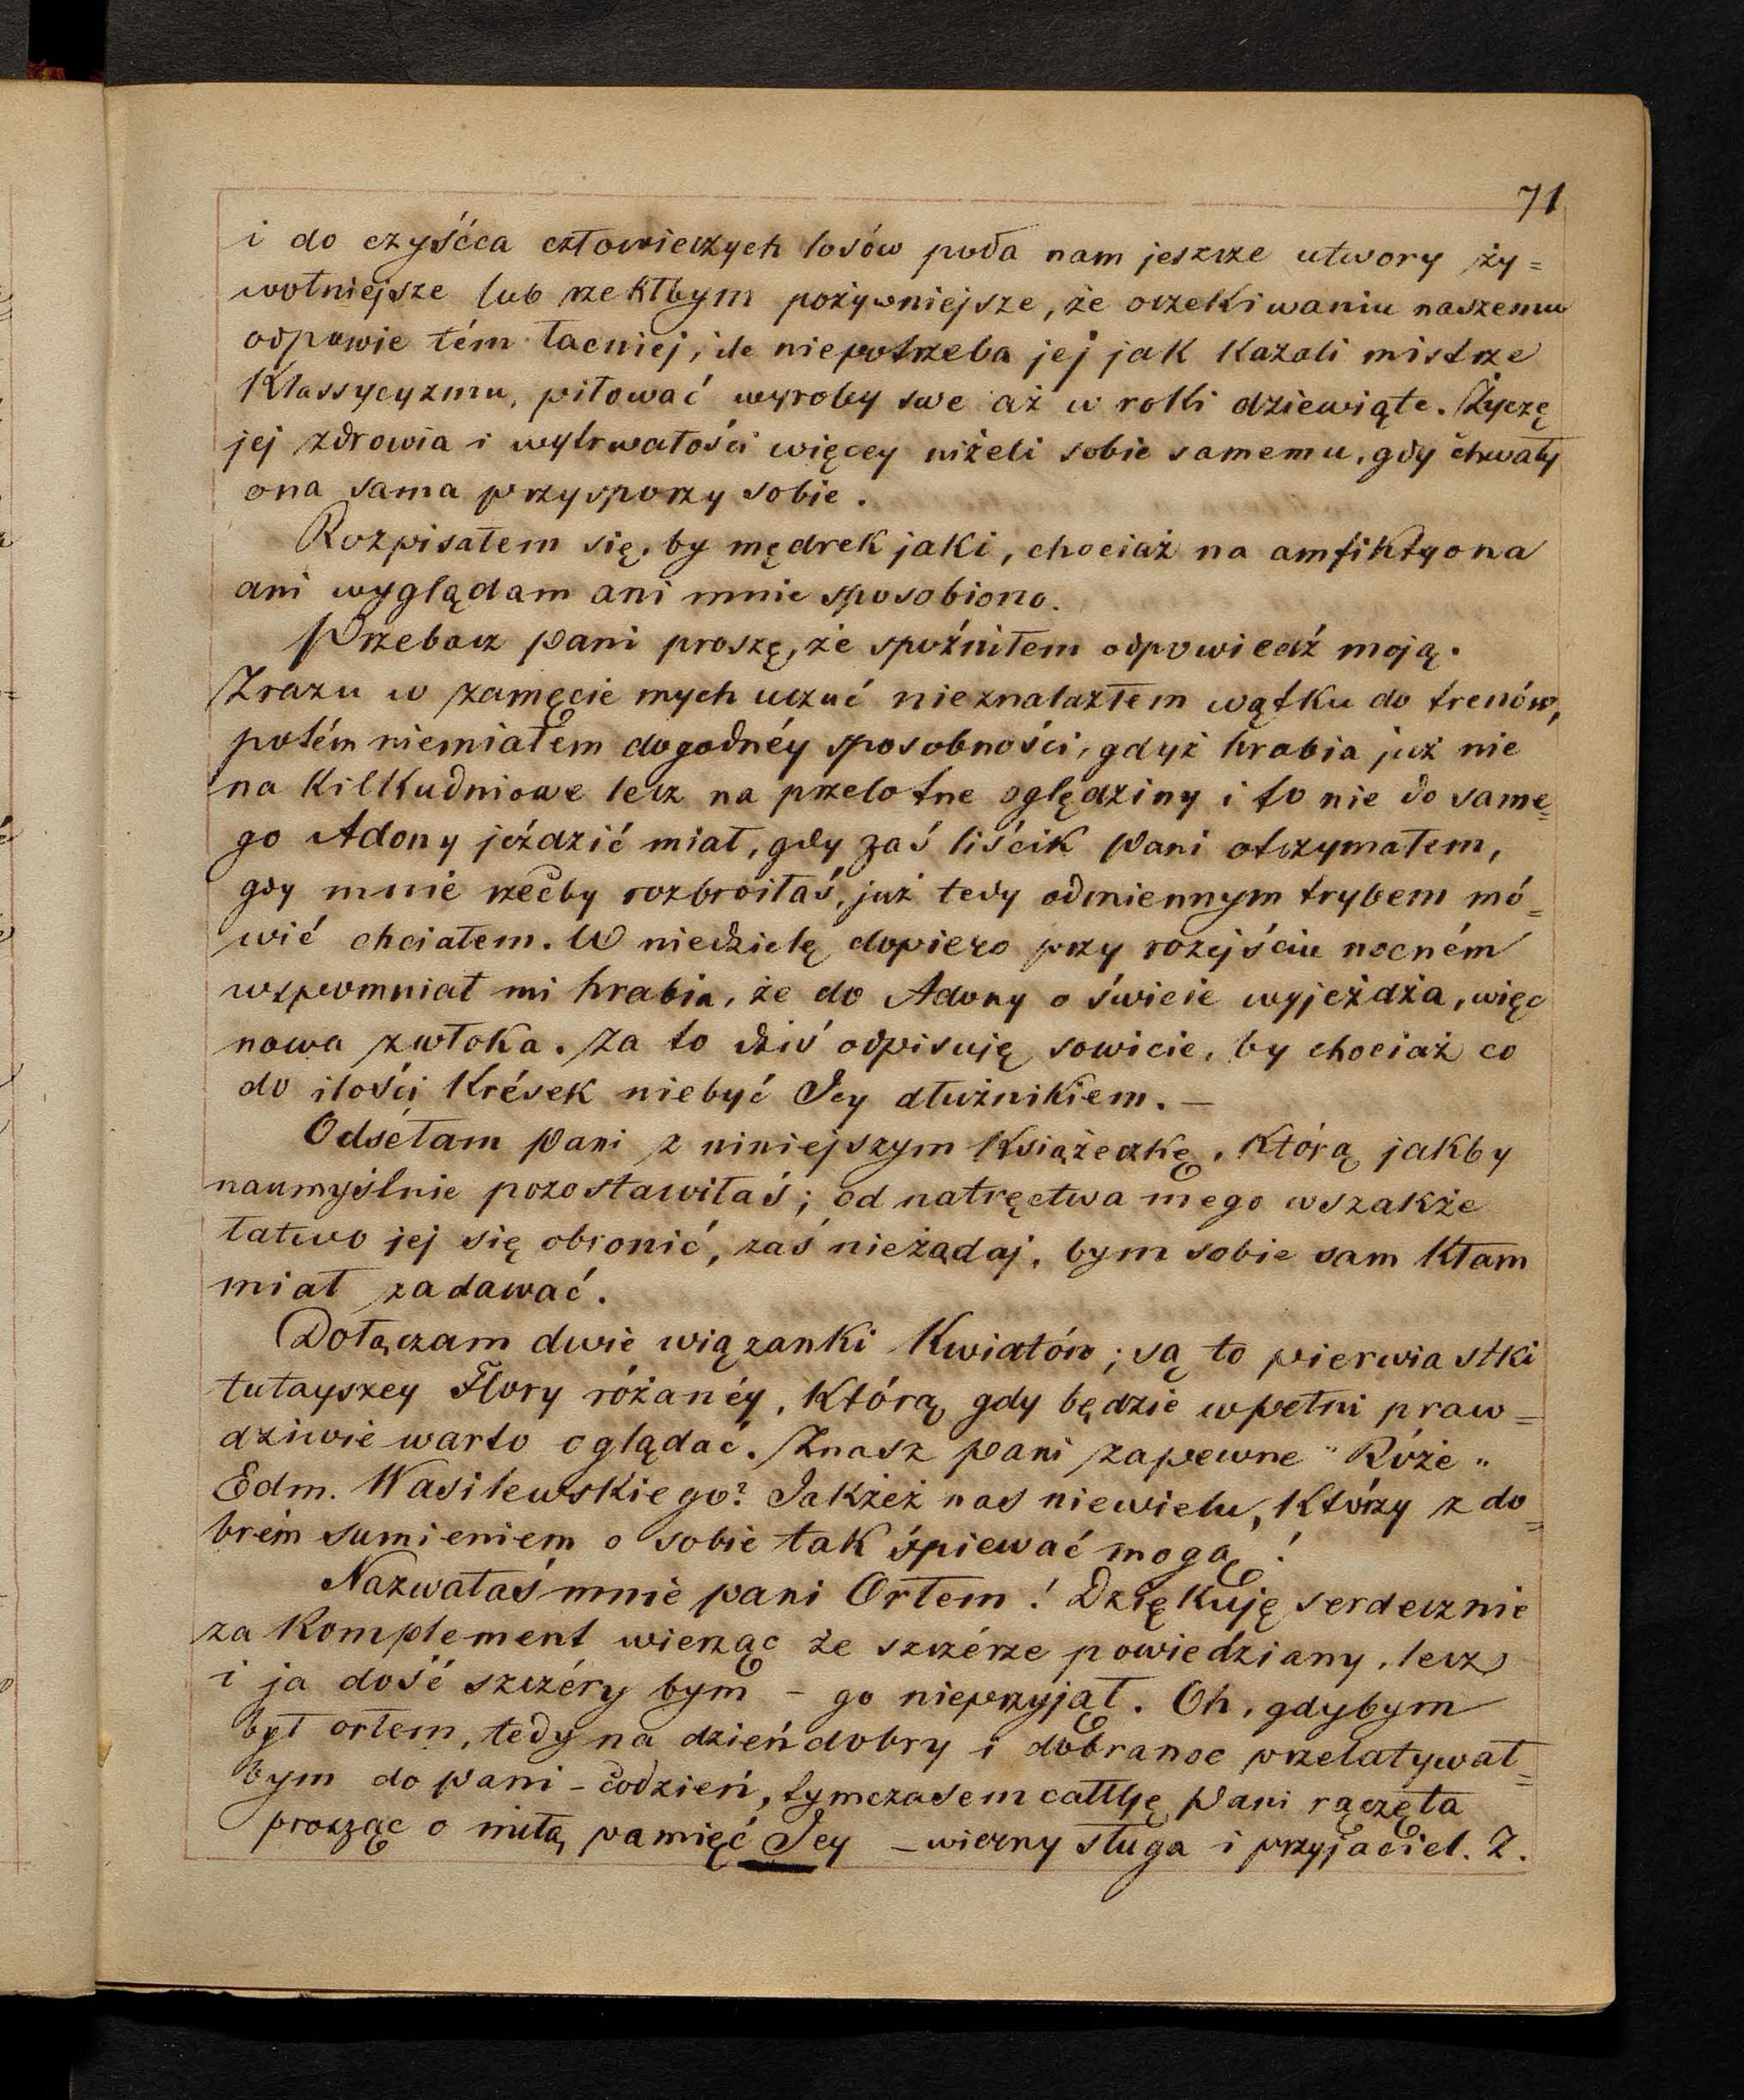 71
i do czyśćca człowieczych losów poda nam jeszcze utwory ży=
wotniejsze lub rzekłbym pożywniejsze, że oczekiwaniu naszemu
odpowie tém łacniej, ile niepotrzeba jej jak kazali mistrze
Klassycyzmu, piłować wyroby swe aż w rołki dziewiąte. Życzę
jej zdrowia i wytrwałości więcey niżeli sobie samemu, gdy chwały
ona sama przysporzy sobie.
Rozpisałem się, by mędrek jaki, chociaż na amfiktyona
ani wyglądam ani mnie sposobiono.
Przebacz Pani proszę, że spóźniłem odpowiedź moją.
Zrazu w zamęcie mych uczuć nieznalazłem wątku do trenów,
potém niemiałem dogodnéy sposobności, gdyż hrabia już nie
na kilkudniowe lecz na przelotne oględziny i to nie do same=
go Adony jeździć miał, gdy zaś liścik Pani otrzymałem,
gdy mnie rzecby rozbroiłaś, już tedy odmiennym trybem mó=
wić chciałem. W niedzielę dopiero przy rozejściu nocném
wspomniał mi hrabia, że do Adony o świcie wyjeżdża, więc
nowa zwłoka. Za to dziś odpisuję sowicie, by chociaż co
do ilości krések niebyć Jey dłużnikiem. —
Odséłam Pani z niniejszym książeczkę, którą jakby
naumyślnie pozostawiłaś; od natręctwa mego wszakże
łatwo jej się obronić, zaś nieżądaj, bym sobie sam kłam
miał zadawać.
Dołączam dwie wiązanki kwiatów; są to pierwiastki
tutayszey Flory różanéy, którą gdy będzie wpełni praw=
dziwie warto oglądać. Znasz pani zapewne "Róże"
Edm. Wasilewskiego? Jakżeż nas niewielu, którzy z do=
brém sumieniem o sobie tak śpiewać mogą!
Nazwałaś mnie pani Orłem! Dziękuję serdecznie
za komplement wierząc że szczérze powiedziany, lecz
i ja dość szczéry bym – go nieprzyjął. Oh, gdybym
był orłem, tedy na dzień dobry i dobranoc przelatywał=
bym do Pani – codzień, tymczasem całuję Pani rączęta
prosząc o miłą pamięć Jey – wierny sługa i przyjaciel. Z.